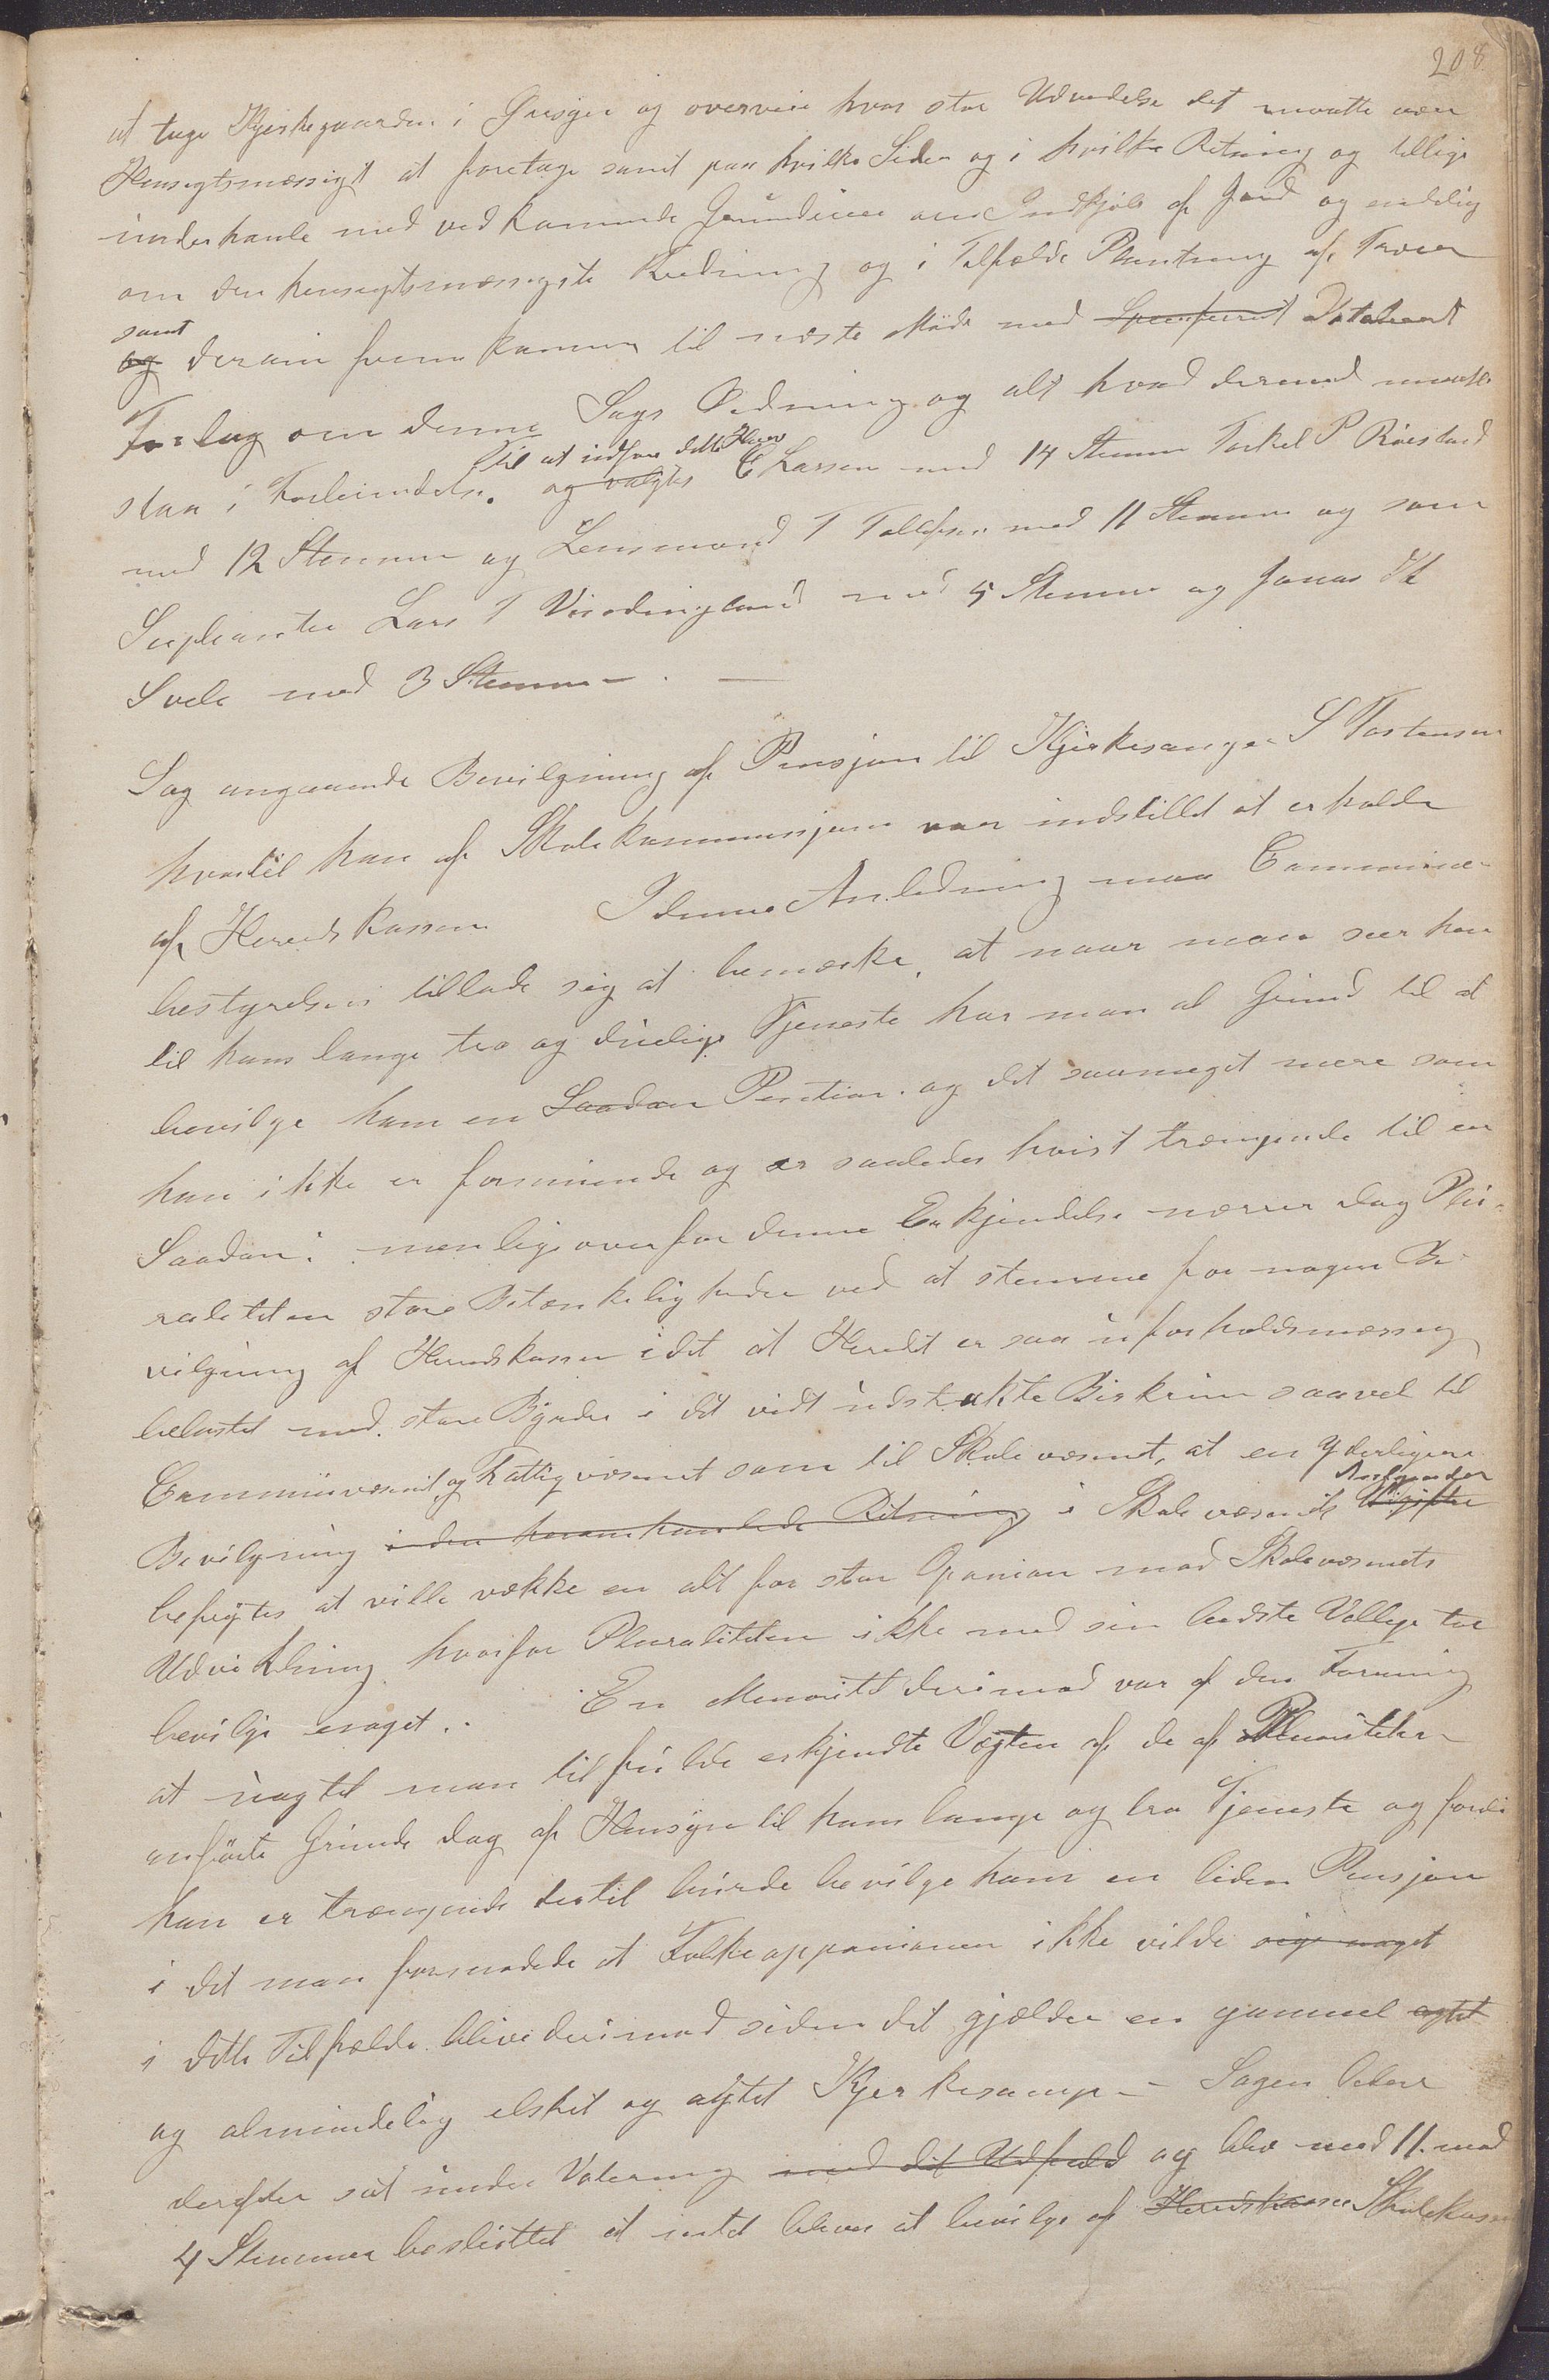 208
at tage Kjerkegaarden i Øiesyn og overveie hvor stor Udvidelse det maatte være
Hensigtsmæssigt at foretage samt paa hvilke Sider og i hvilke Retning og tillige
underhanle med vedkommende Grundeier om Indkjøb af Jord og endelig
om den hensigtsmæssigste Fredning og i Tilfælde Plantning af Træer
samt
og derom fremkomme til næste Møde med
Forslag om denne Sags Ordning og alt hvad dermed maatte
til at udføre dette Hverv
staa i Forbindelse. og valgtes E Larsen med 14 Stemmer Torkel P
med 12 Stemmer og Lensmand T Tollefsen med 11 Stemmer og som
Suplianter Lars T med 5 Stemmer og Jonas
Svele med 3 Stemmer. —
Sag angaaende Bevilgning af Pensjon til Kjerkesanger S Tostensen
hvortil han af Skolekommissjonen var indstillet at erholde
af Heredskassen I denne Anledning maa Commune-
bestyrelsen tillade sig at bemærke, at naar man seer hen
til hans lange tro og duelige Tjeneste har man al Grund til at
bevilge ham en Saadan Pention. og det saameget mere som
han ikke er formuende og er saaledes høist trængende til en
Saadan: men ligeoverfor denne Erkjendelse nærer dog Plu-
raliteten store Betænkeligheder ved at stemme for nogen Be-
vilgning af Heredskassen idet at Heredet er saa uforholdsmæssig
belastet med store Byrder i det vidt udstrakte Bjerkrim saavel til
Communevæsenet og Fattigvæsenet som til Skolevæsenet, at en yderligere
Bevilgning i den heromhandlede Retning i Skolevæsenets Udgifter
befrygtes at ville vække en alt for stor Oponion mod Skolevæsenets
Udvikling hvorfor Pluraliteten ikke med sin bedste Vellige tor
bevilge noget.. En Menoritet derimod var af den Formening
at uagtet man til fulde erkjendte Vægten af de af Pluraliteten
anførte Grunde dog af Hensyn til hans lange og tro Tjeneste og fordi
han er trængende dertil burde bevilge ham en liden Pensjon
i det man formodede at Folkeopponionen ikke vilde sige noget
i dette Tilfælde blive derimod siden det gjælder en gammel agtet
og almindelig elsket og agtet Kjerkesanger — Sagen blev
derefter sat under Votering med det Udfald og blev med 11. mod
4 Stemmer besluttet at intet bliver at bevilge af Heredskassen Skolekassen